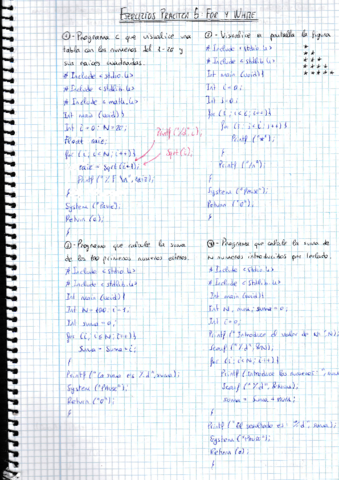 EJERCICIOS PRACTICA 6 FOR Y WHILE
①- Programa c que visualice una
tabla con los numeros del 1-20 y
sus raices cuadradas.
# Include <stdio.h>
# Include <stdlib.h>
# Include <math.h>
Int main (void){
Int i=0; N=20;
Float raiz;
for (i; i<N; i++){
raiz = sqrt (i+1);
Printf ("%f \n", raiz);
}
System ("Pause");
Return (0);
}
Printf ("%d" i);
Sqrt (i);
②- Visualice a pantalla la figura
# Include <stdio.h>
# Include <stdlib.h>
Int main (void){
Int i=0;
Printf ("*");
}
Printf ("\n");
}
System ("Pause");
Return ("0");
}
③- Programa que calcule la suma
de los 100 primeros numeros enteros.
# Include <stdio.h>
# Include <stdlib.h>
Int main (void){
Int N=100, i=1;
Int suma=0;
for (i; i≤N; i++){
Suma = Suma+i;
}
Printf ("La suma es %d", suma);
System ("Pause");
Return ("0");
}
④- Programa que calcule la suma de
N numeros introducidos por teclado.
# Include <stdio.h>
# Include <stdlib.h>
Int main (void){
Int N, num, suma=0;
Int i=0;
Printf ("Introduce el valor de N", N);
Scanf ("%d", &N);
for (i; i<N; i++){
Printf (Introduce los numeros
Scanf ("%d", &num);
suma = suma + num;
}
Printf ("El resultado es %d", suma);
System ("Pause");
Return (0);
}